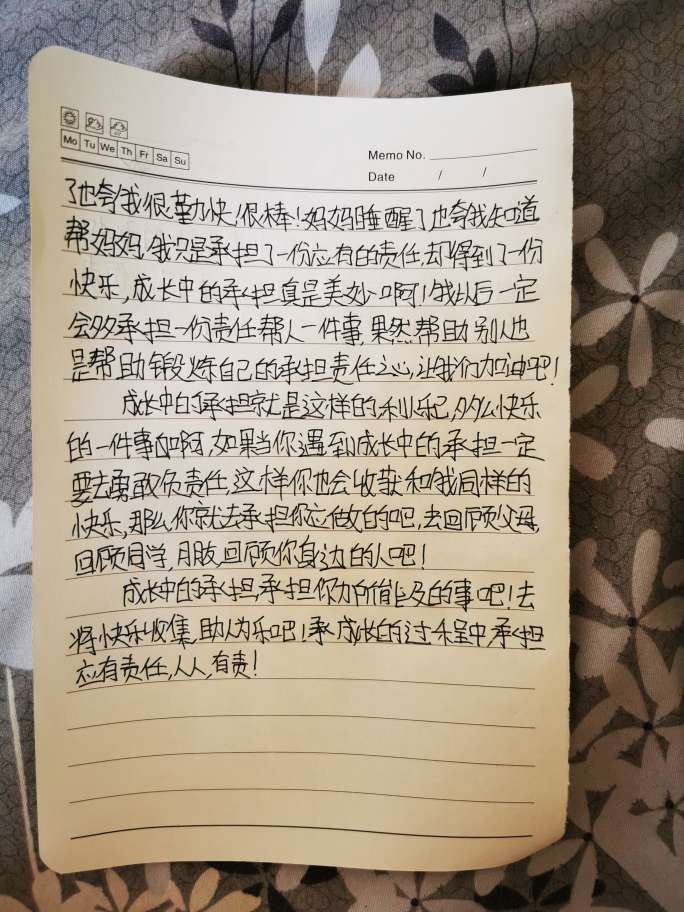 Mo Tu We Th Fr Sa Su
Memo No.
Date / /
了也夸我很勤快,很棒!妈妈睡醒了也夸我知道
帮妈妈,我只是承担了一份应有的责任,却得到了一份
快乐,成长中的承担真是美妙啊!我以后一定
会多承担一份责任帮人一件事,果然帮助别人也
是帮助锻炼自己的承担责任之心,让我们加油吧!
成长中的承担就是这样的,多么快乐
的一件事啊,如果当你遇到成长中的承担一定
要去勇敢负责任,这样你也会收获和我同样的
快乐,那么,你就去承担你应做的吧,去回顾父母,
回顾同学,朋友,回顾你身边的人吧!
成长中的承担,承担你力所能及的事吧!去
将快乐收集,助人为乐吧!承成长的过程中承担
应有责任,人人,有责!